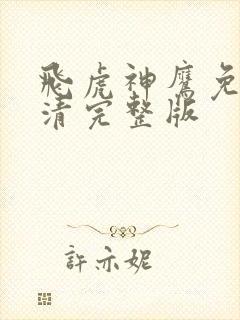 飛虎神鷹免
清完整版
許亦妮